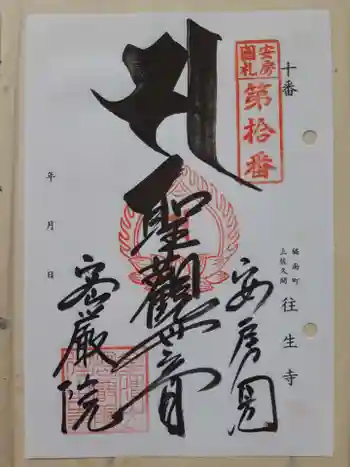 十番
鋸南町
上佐久間
往生寺
安房
国札
第拾番
安房国
聖觀世音
密厳院
年 月 日